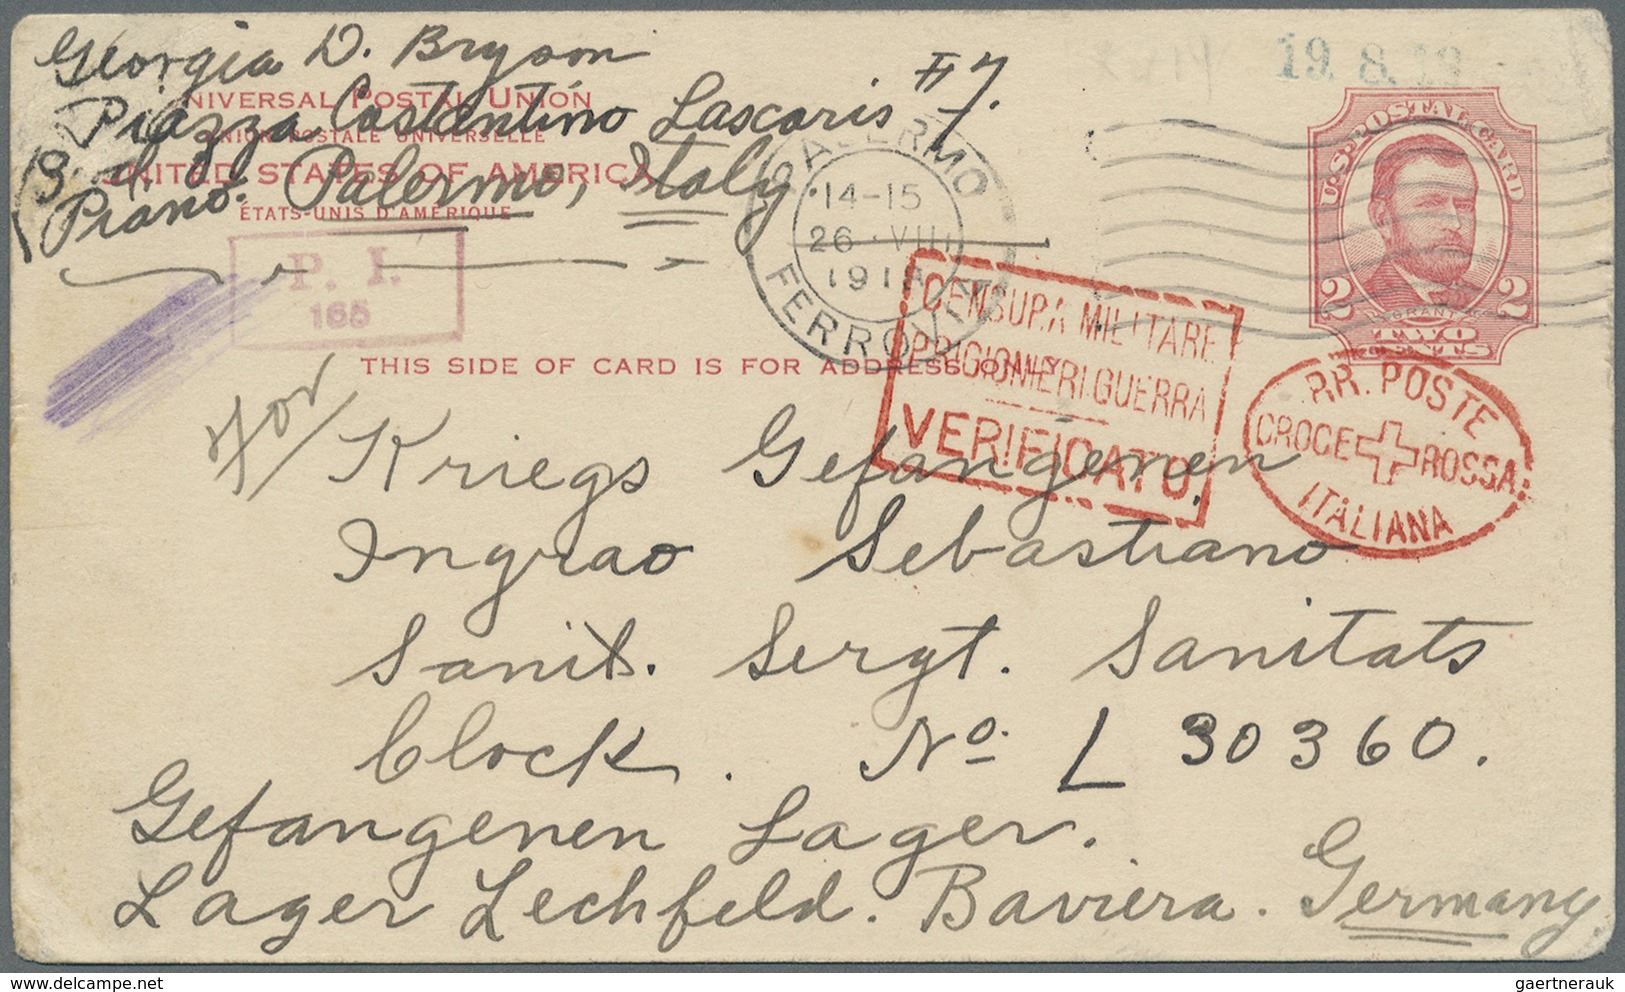 Georgia D. Bryson
Piazza Costantino Lascaris #7.
Piano. Palermo, Italy.
UNIVERSAL POSTAL UNION
UNION POSTALE UNIVERSELLE
UNITED STATES OF AMERICA
ÉTATS-UNIS D'AMÉRIQUE
P. I.
165
THIS SIDE OF CARD IS FOR ADDRESS ONLY
19. 8.
PALERMO
14-15
26 · VIII
FERROVIA
U.S. POSTAL CARD
2 2
GRANT
TWO
CENTS
CENSURA MILITARE
PRIGIONIERI GUERRA
VERIFICATO
RR. POSTE
CROCE ROSSA
ITALIANA
For
Kriegs Gefangenen
Ingrao Sebastiano
Sanit. Sergt. Sanitats
Clock. No. L 30360.
Gefangenen Lager.
Lager Lechfeld. Baviera. Germany
gaertnerauk @ delcampe.net